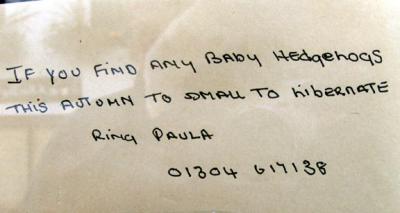 IF YOU FIND ANY BABY HEDGEHOGS
THIS AUTUMN TO SMALL TO HIBERNATE
RING PAULA
01304 617138